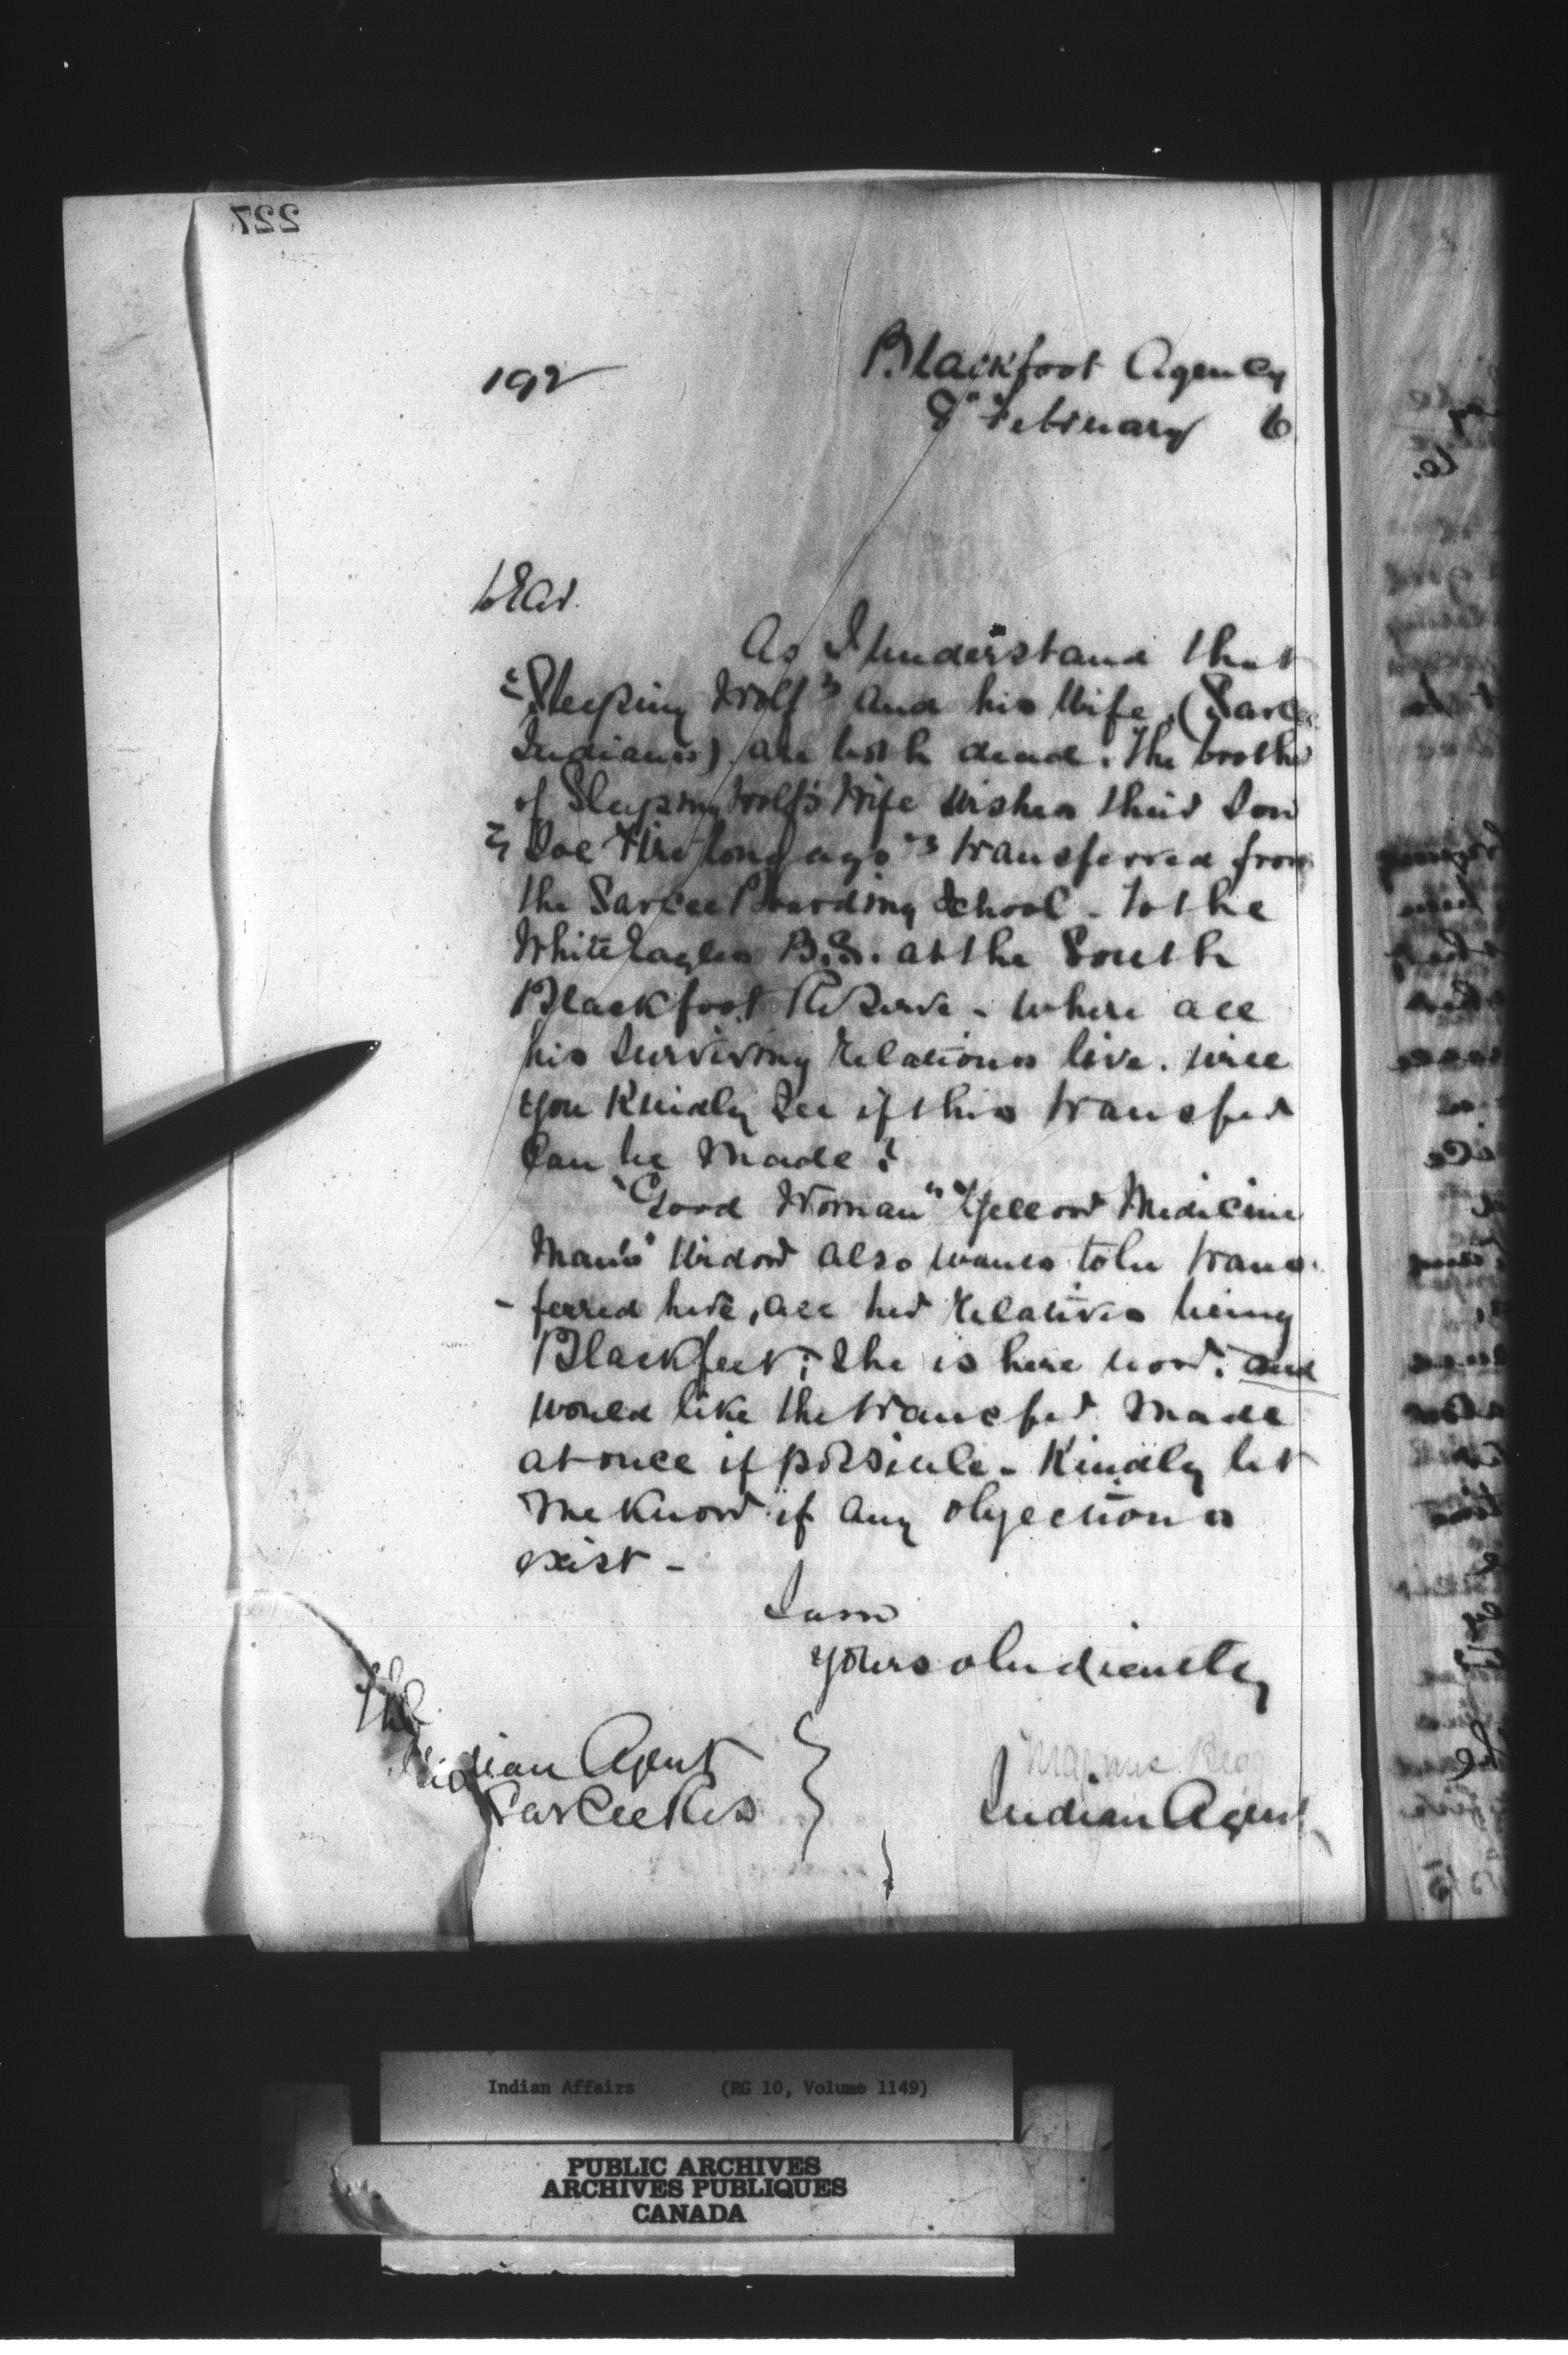 227
192
Blackfoot Agency
8" February 6
As I understand that
"Sleeping Wolf" and his Wife, (Sarcee
Indians) are both dead. The brother
of Sleeping Wolf's Wife wishes their Son
"Joe Fire long ago" transferred from
the Sarcee Boarding School - to the
White Eagles B.S. at the South
Blackfoot Reserve - where all
his Surviving Relations live. Will
you Kindly See if this transfer
Can be Made?
"Good Woman" "Yellow Medicine
Man's" Widow also wants to be trans-
-ferred here, all her Relatives being
Blackfeet; She is here now. and
would like the transfer Made
at once if possible - Kindly let
Me Know if any objections
exist -
I am
Yours obediently
The
Indian Agent
Sarcee Res
Indian Agent
Indian Affairs (RG 10, Volume 1149)
PUBLIC ARCHIVES
ARCHIVES PUBLIQUES
CANADA